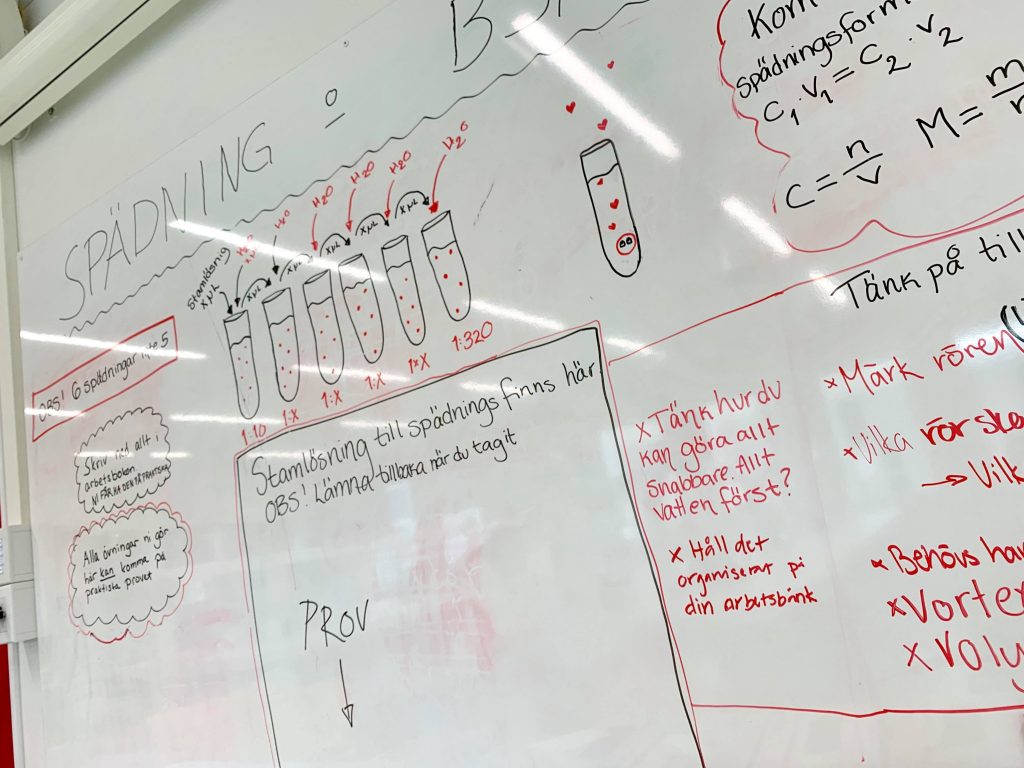 SPÄDNING
Stamlösning
X µL
H2O
H2O
H2O
H2O
H2O
H2O
X µL
X µL
X µL
X µL
X µL
1:10
1:X
1:X
1:X
1:X
1:320
OBS! 6 spädningar inte 5
Skriv ned allt i
arbetsboken
NI FÅR HA DEN PÅ PRAKTISKA
Alla övningar ni gör
här kan komma på
praktiska provet
Stamlösning till spädnings finns här
OBS! Lämna tillbaka när du tagit
PROV
Kom
spädningsform
C1·V1 = C2·V2
C = n/V
M = m/n
Tänk på till
x Tänk hur du
kan göra allt
snabbare. Allt
vatten först?
x Håll det
organiserat på
din arbetsbänk
x Märk rören
x Vilka rör ska
→ Vilk
x Behövs han
x Vortex
x Voly